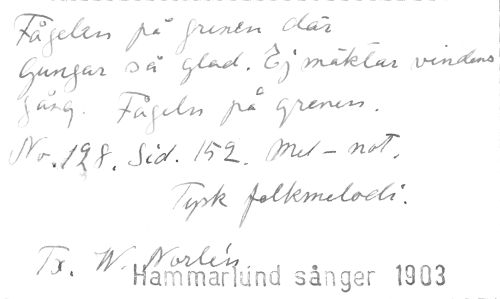 Fågeln på grenen där
gungar så glad. Ej mäktar vindens
gång. Fågeln på grenen.
No. 128. Sid. 152. Mel-not.
Tysk folkmelodi.
Tx. W. Norlén.
Hammarlund sånger 1903